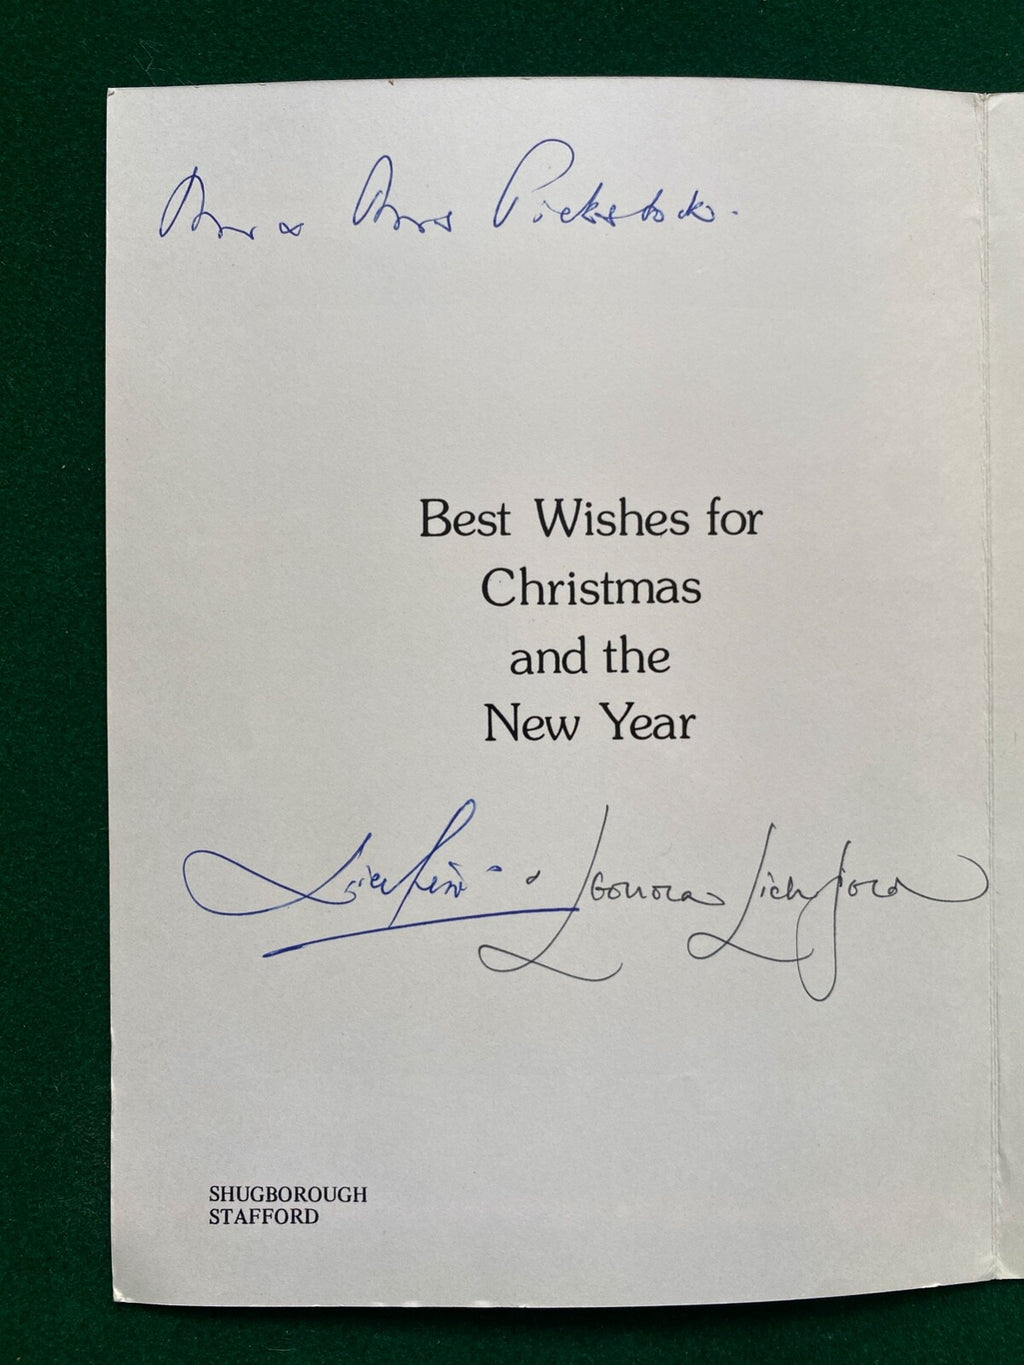 Mr & Mrs Pickstock.
Best Wishes for
Christmas
and the
New Year
Lichfield & Leonora Lichfield
SHUGBOROUGH
STAFFORD